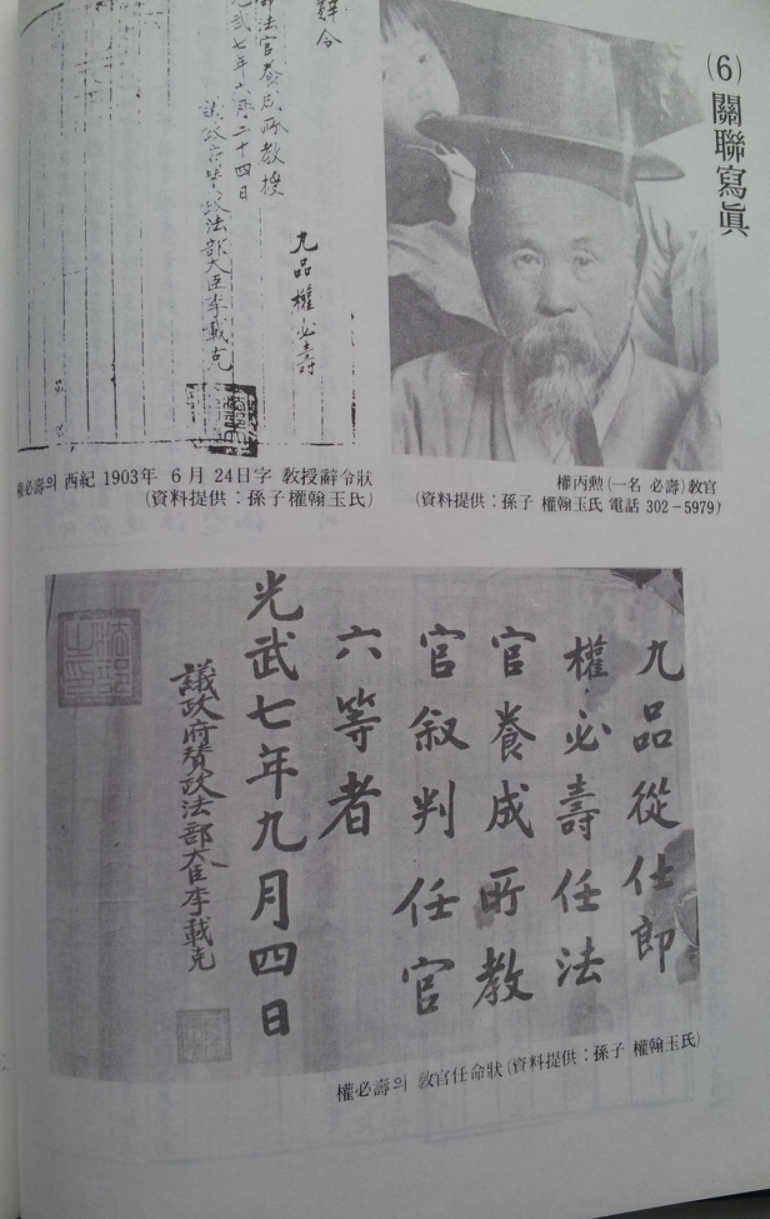 (6) 關聯寫眞
辭令
九品 權必壽
法官養成所敎授
光武七年六月二十四日
議政府贊政法部大臣李載克
權必壽의 西紀 1903年 6月 24日字 敎授辭令狀
(資料提供：孫子權翰玉氏)
權丙勳(一名 必壽)敎官
(資料提供：孫子 權翰玉氏 電話 302-5979)
九品從仕郎
權必壽任法
官養成所敎
官叙判任官
六等者
光武七年九月四日
議政府贊政法部大臣李載克
權必壽의 敎官任命狀(資料提供：孫子 權翰玉氏)